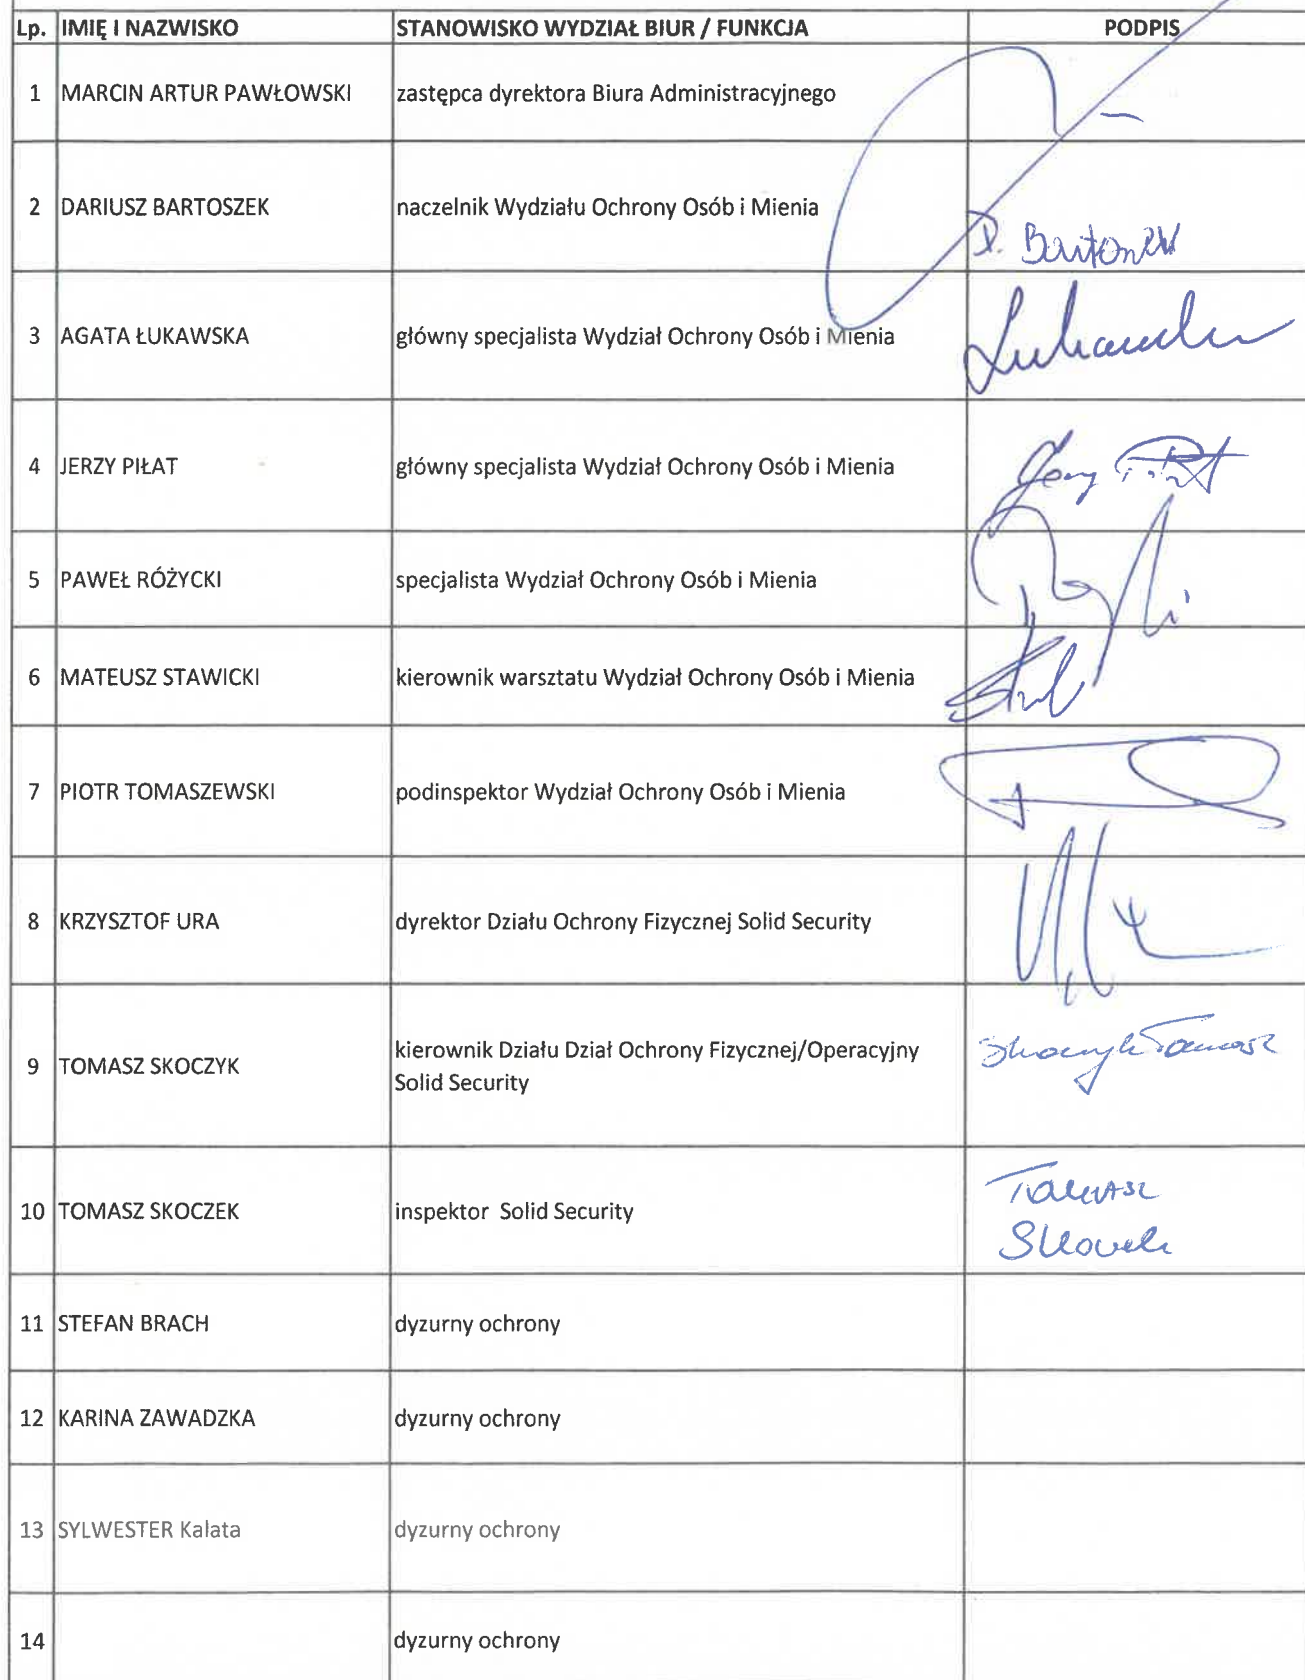 Lp. IMIĘ I NAZWISKO STANOWISKO WYDZIAŁ BIUR / FUNKCJA PODPIS
1 MARCIN ARTUR PAWŁOWSKI zastępca dyrektora Biura Administracyjnego
2 DARIUSZ BARTOSZEK naczelnik Wydziału Ochrony Osób i Mienia D. Bartoszek
3 AGATA ŁUKAWSKA główny specjalista Wydział Ochrony Osób i Mienia
4 JERZY PIŁAT główny specjalista Wydział Ochrony Osób i Mienia Jerzy
5 PAWEŁ RÓŻYCKI specjalista Wydział Ochrony Osób i Mienia
6 MATEUSZ STAWICKI kierownik warsztatu Wydział Ochrony Osób i Mienia
7 PIOTR TOMASZEWSKI podinspektor Wydział Ochrony Osób i Mienia
8 KRZYSZTOF URA dyrektor Działu Ochrony Fizycznej Solid Security
9 TOMASZ SKOCZYK kierownik Działu Dział Ochrony Fizycznej/Operacyjny Skoczyk Tomasz
Solid Security
10 TOMASZ SKOCZEK inspektor Solid Security Tomasz
Skoczek
11 STEFAN BRACH dyzurny ochrony
12 KARINA ZAWADZKA dyzurny ochrony
13 SYLWESTER Kalata dyzurny ochrony
14 dyzurny ochrony